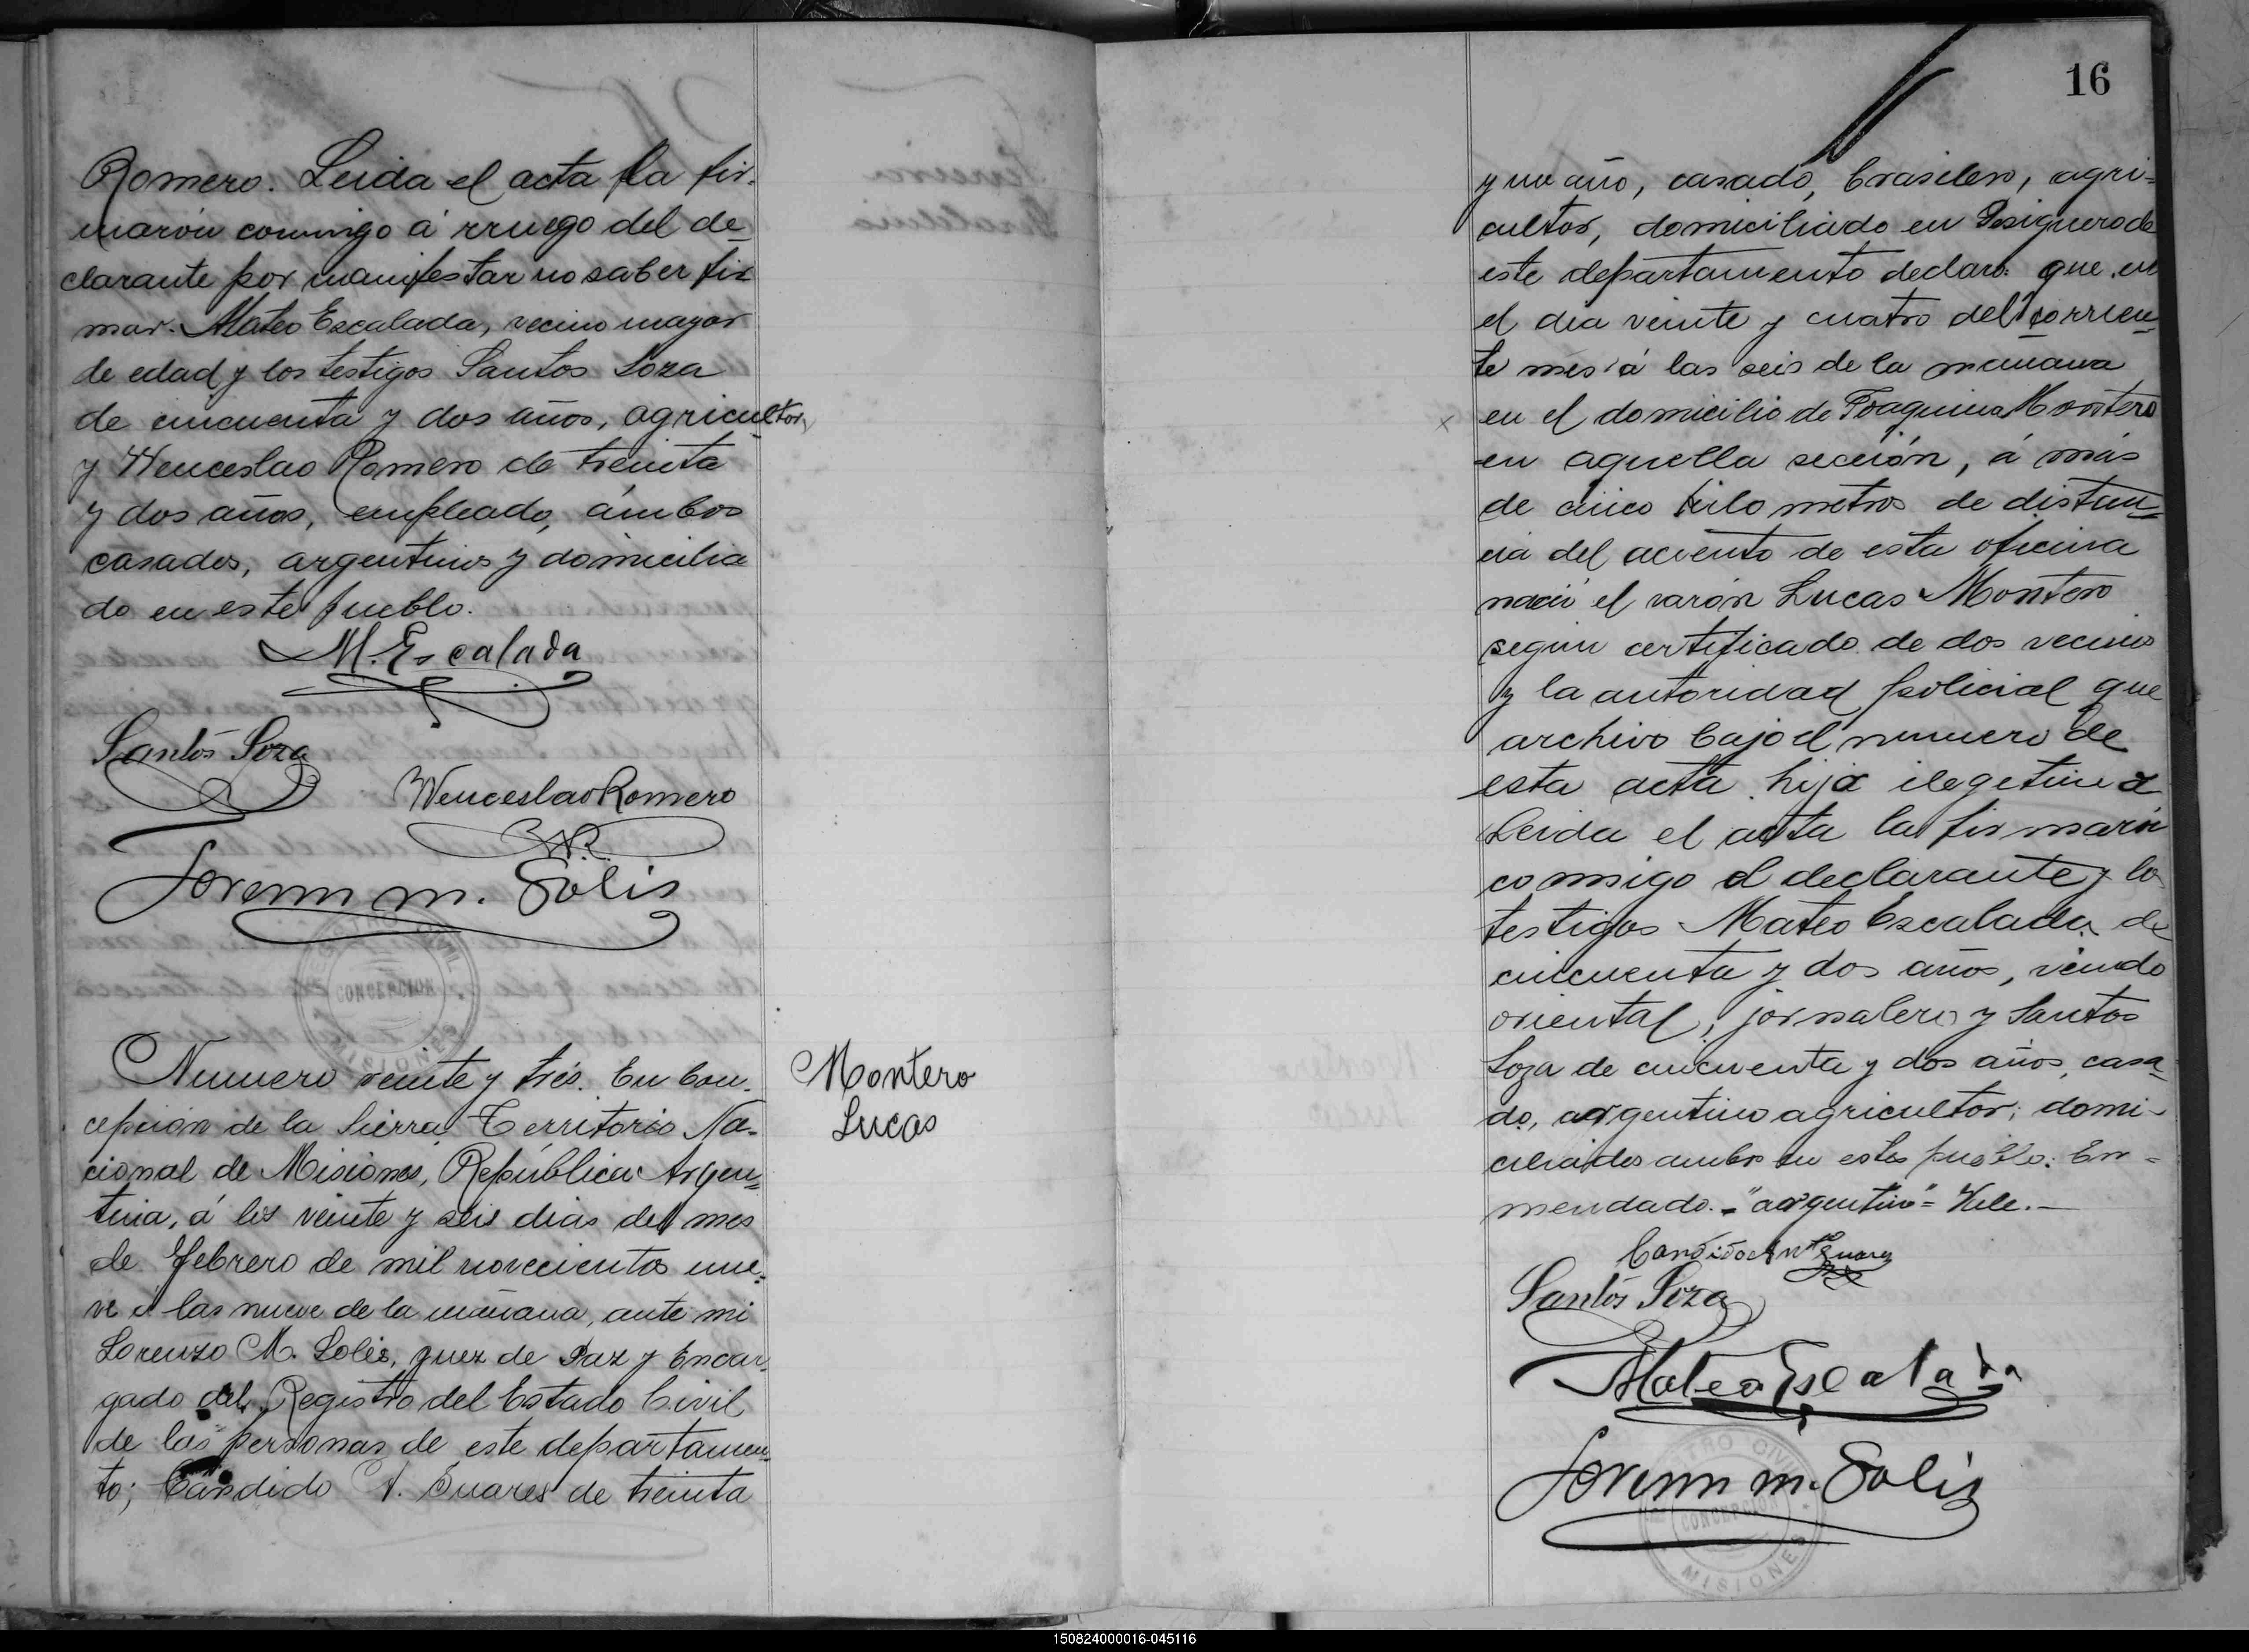 Romero. Leida el acta la fir-
marón conmigo á rruego del de-
clarante por manifestar no saber fir
mar. Mateo Escalada, vecino mayor
de edad y los testigos Santos Soza
de cincuenta y dos años, agricultor,
y Wenceslao Romero de treinta
y dos años, empleado, ámbos
casados, argentinos y domicilia
do en este pueblo.
M. Escalada
Santos Soza
Wenceslao Romero
WR.
Lorenzo M. Solis
REGISTRO CIVIL
CONCEPCION
MISIONES
Numero veinte y trés. En Con-
cepción de la Sierra Territorio Na-
cional de Misiones, República Argen-
tina, á los veinte y seis dias del mes
de febrero de mil novecientos nue-
ve á las nueve de la mañana, ante mi
Lorenzo M. Solis, guez de Paz y Encar-
gado del Registro del Estado Civil
de las personas de este departamen-
to; Cándido A. Suares de treinta
Montero
Lucas
16
y un año, casado, brasilero, agri-
cultor, domiciliado en Persiguero de
este departamento declaro: que en
el dia veinte y cuatro del corrien-
te mes á las seis de la mañana
en el domicilio de Joaquina Montero
en aquella sección, á más
de cinco kilometros de distan-
cia del aciento de esta oficina
nació el varón Lucas Montero
según certificado de dos vecinos
y la autoridad policial que
archivo bajo el numero de
esta acta, hija ilegetima
Leida el acta la firmarón
conmigo el declarante y los
testigos Mateo Escalada de
cincuenta y dos años, viudo
oriental, jornalero y Santos
Soza de cincuenta y dos años, casa-
do, argentino agricultor; domi-
ciliados ambos en este pueblo. En-
mendado.- "argentino" = Vale.-
Candido Anto Suarez
Santos Soza
Mateo Escalada
Lorenzo M. Solis
REGISTRO CIVIL
CONCEPCION
MISIONES
150824000016-045116